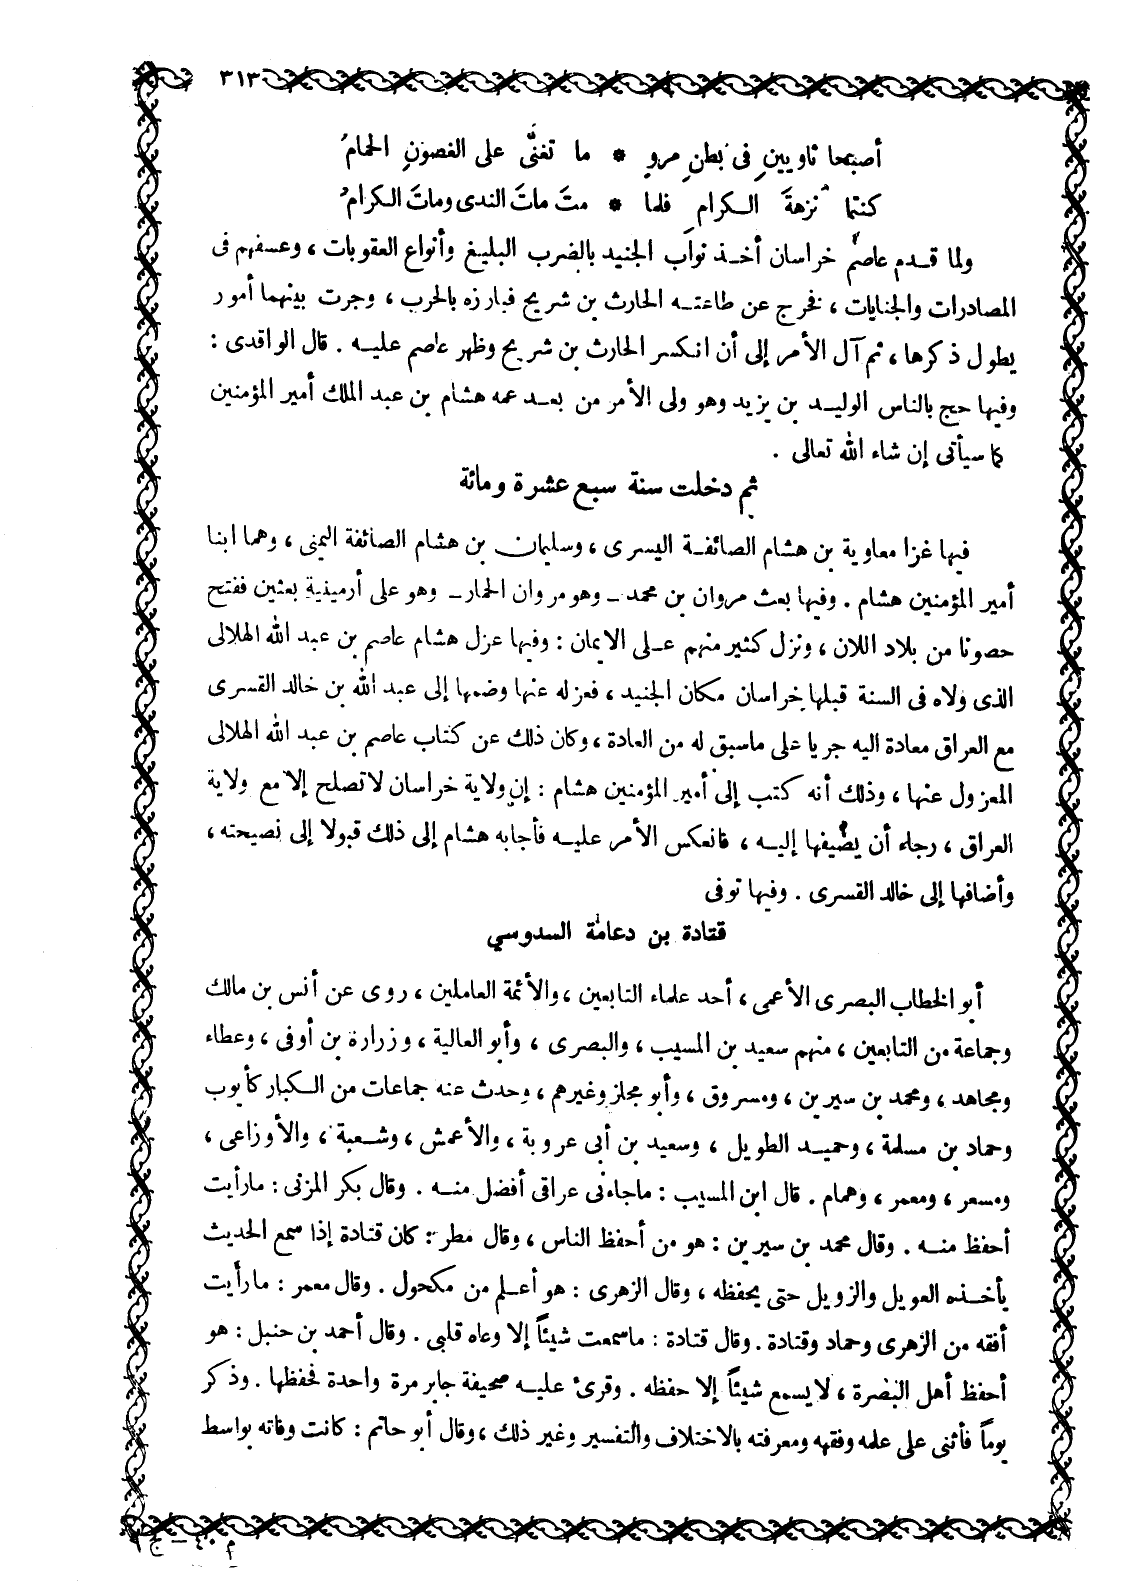 ٣١٣
أصبحا ثاويين فى بطن مرو * ما تغنَّى على الغصون الحمامُ
كنتما نزهةَ الكرام فلما * متَ ماتَ الندى وماتَ الكرامُ
ولما قدم عاصم خراسان أخذ نواب الجنيد بالضرب البليغ وأنواع العقوبات ، وعسفهم فى
المصادرات والجنايات ، فخرج عن طاعته الحارث بن شريح فبارزه بالحرب ، وجرت بينهما أمور
يطول ذكرها ، ثم آل الأمر إلى أن انكسر الحارث بن شريح وظهر عاصم عليه . قال الواقدى :
وفيها حج بالناس الوليد بن يزيد وهو ولى الأمر من بعد عمه هشام بن عبد الملك أمير المؤمنين
كما سيأتى إن شاء الله تعالى .
ثم دخلت سنة سبع عشرة ومائة
فيها غزا معاوية بن هشام الصائفة اليسرى ، وسليمان بن هشام الصائفة اليمنى ، وهما ابنا
أمير المؤمنين هشام . وفيها بعث مروان بن محمد ــ وهو مروان الحمار ــ وهو على أرمينية بعثين ففتح
حصونا من بلاد اللان ، ونزل كثير منهم على الايمان : وفيها عزل هشام عاصم بن عبد الله الهلالى
الذى ولاه فى السنة قبلها خراسان مكان الجنيد ، فعزله عنها وضمها إلى عبد الله بن خالد القسرى
مع العراق معادة اليه جريا على ماسبق له من العادة ، وكان ذلك عن كتاب عاصم بن عبد الله الهلالى
المعزول عنها ، وذلك أنه كتب إلى أمير المؤمنين هشام : إن ولاية خراسان لاتصلح إلا مع ولاية
العراق ، رجاء أن يضيفها إليه ، فانعكس الأمر عليه فأجابه هشام إلى ذلك قبولا إلى نصيحته ،
وأضافها إلى خالد القسرى . وفيها توفى
قتادة بن دعامة السدوسي
أبو الخطاب البصرى الأعمى ، أحد علماء التابعين ، والأئمة العاملين ، روى عن أنس بن مالك
وجماعة من التابعين ، منهم سعيد بن المسيب ، والبصرى ، وأبو العالية ، وزرارة بن أوفى ، وعطاء
ومجاهد ، ومحمد بن سيرين ، ومسروق ، وأبو مجلز وغيرهم ، وحدث عنه جماعات من الكبار كأيوب
وحماد بن مسلمة ، وحميد الطويل ، وسعيد بن أبى عروبة ، والأعمش ، وشعبة ، والأوزاعى ،
ومسعر ، ومعمر ، وهمام . قال ابن المسيب : ماجاءنى عراقى أفضل منه . وقال بكر المزنى : مارأيت
أحفظ منه . وقال محمد بن سيرين : هو من أحفظ الناس ، وقال مطر : كان قتادة إذا سمع الحديث
يأخذه العويل والزويل حتى يحفظه ، وقال الزهرى : هو أعلم من مكحول . وقال معمر : مارأيت
أفقه من الزهرى وحماد وقتادة . وقال قتادة : ماسمعت شيئاً إلا وعاه قلبى . وقال أحمد بن حنبل : هو
أحفظ أهل البصرة ، لا يسمع شيئاً إلا حفظه . وقرئ عليه صحيفة جابر مرة واحدة فحفظها . وذكر
يوماً فأثنى على علمه وفقهه ومعرفته بالاختلاف والتفسير وغير ذلك ، وقال أبو حاتم : كانت وفاته بواسط
م ٤٠ ــ ج ٩